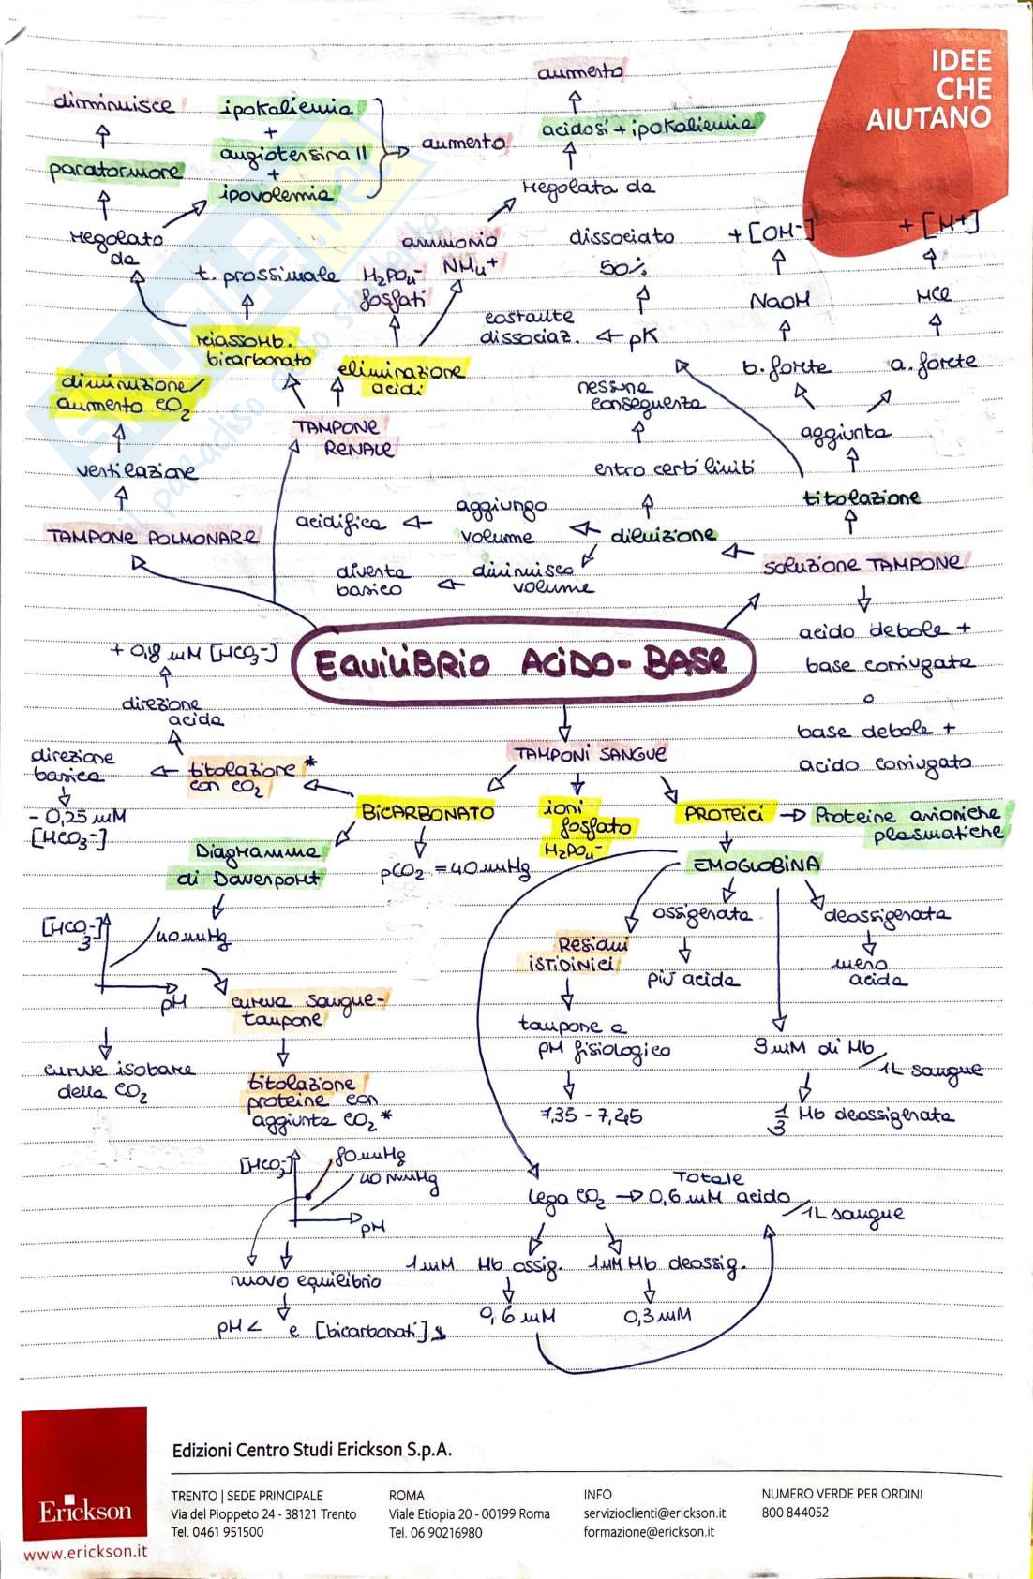 IDEE
CHE
AIUTANO
aumento
diminuisce
ipokaliemia
+
angiotensina II
+
ipovolemia
aumento
acidosi + ipokaliemia
paratormone
regolata da
regolato
da
ammonio
NH4+
dissociato
50%
+ [OH-]
+ [H+]
t. prossimale
H2PO4-
fosfati
NaOH
HCl
costante
dissociaz.
pK
riassorb.
bicarbonato
eliminazione
acidi
b. forte
a. forte
diminuzione/
aumento CO2
nessuna
conseguenza
TAMPONE
RENALE
aggiunta
ventilazione
entro certi limiti
titolazione
acidifica
aggiungo
volume
diluizione
TAMPONE POLMONARE
diventa
basico
diminuisco
volume
soluzione TAMPONE
acido debole +
base coniugata
o
base debole +
acido coniugato
EQUILIBRIO ACIDO-BASE
+ 0,18 mM [HCO3-]
direzione
acida
direzione
basica
titolazione *
con CO2
- 0,25 mM
[HCO3-]
TAMPONI SANGUE
BICARBONATO
ioni
fosfato
H2PO4-
PROTEICI
Proteine anioniche
plasmatiche
Diagramma
di Davenport
pCO2 = 40 mmHg
EMOGLOBINA
[HCO3-]
40 mmHg
pH
ossigenata
deossigenata
Residui
istidinici
più acida
meno
acida
curva sangue-
tampone
tampone a
pH fisiologico
9 mM di Hb
/1L sangue
curve isobare
della CO2
titolazione
proteine con
aggiunta CO2 *
7,35 - 7,45
1/3 Hb deossigenata
[HCO3-]
80 mmHg
40 mmHg
pH
Totale
lega CO2
0,6 mM acido
/1L sangue
nuovo equilibrio
1 mM Hb ossig.
1 mM Hb deossig.
pH < e [bicarbonati] >
0,6 mM
0,3 mM
Erickson
www.erickson.it
Edizioni Centro Studi Erickson S.p.A.
TRENTO | SEDE PRINCIPALE
Via del Pioppeto 24 - 38121 Trento
Tel. 0461 951500
ROMA
Viale Etiopia 20 - 00199 Roma
Tel. 06 90216980
INFO
servizioclienti@erickson.it
formazione@erickson.it
NUMERO VERDE PER ORDINI
800 844052